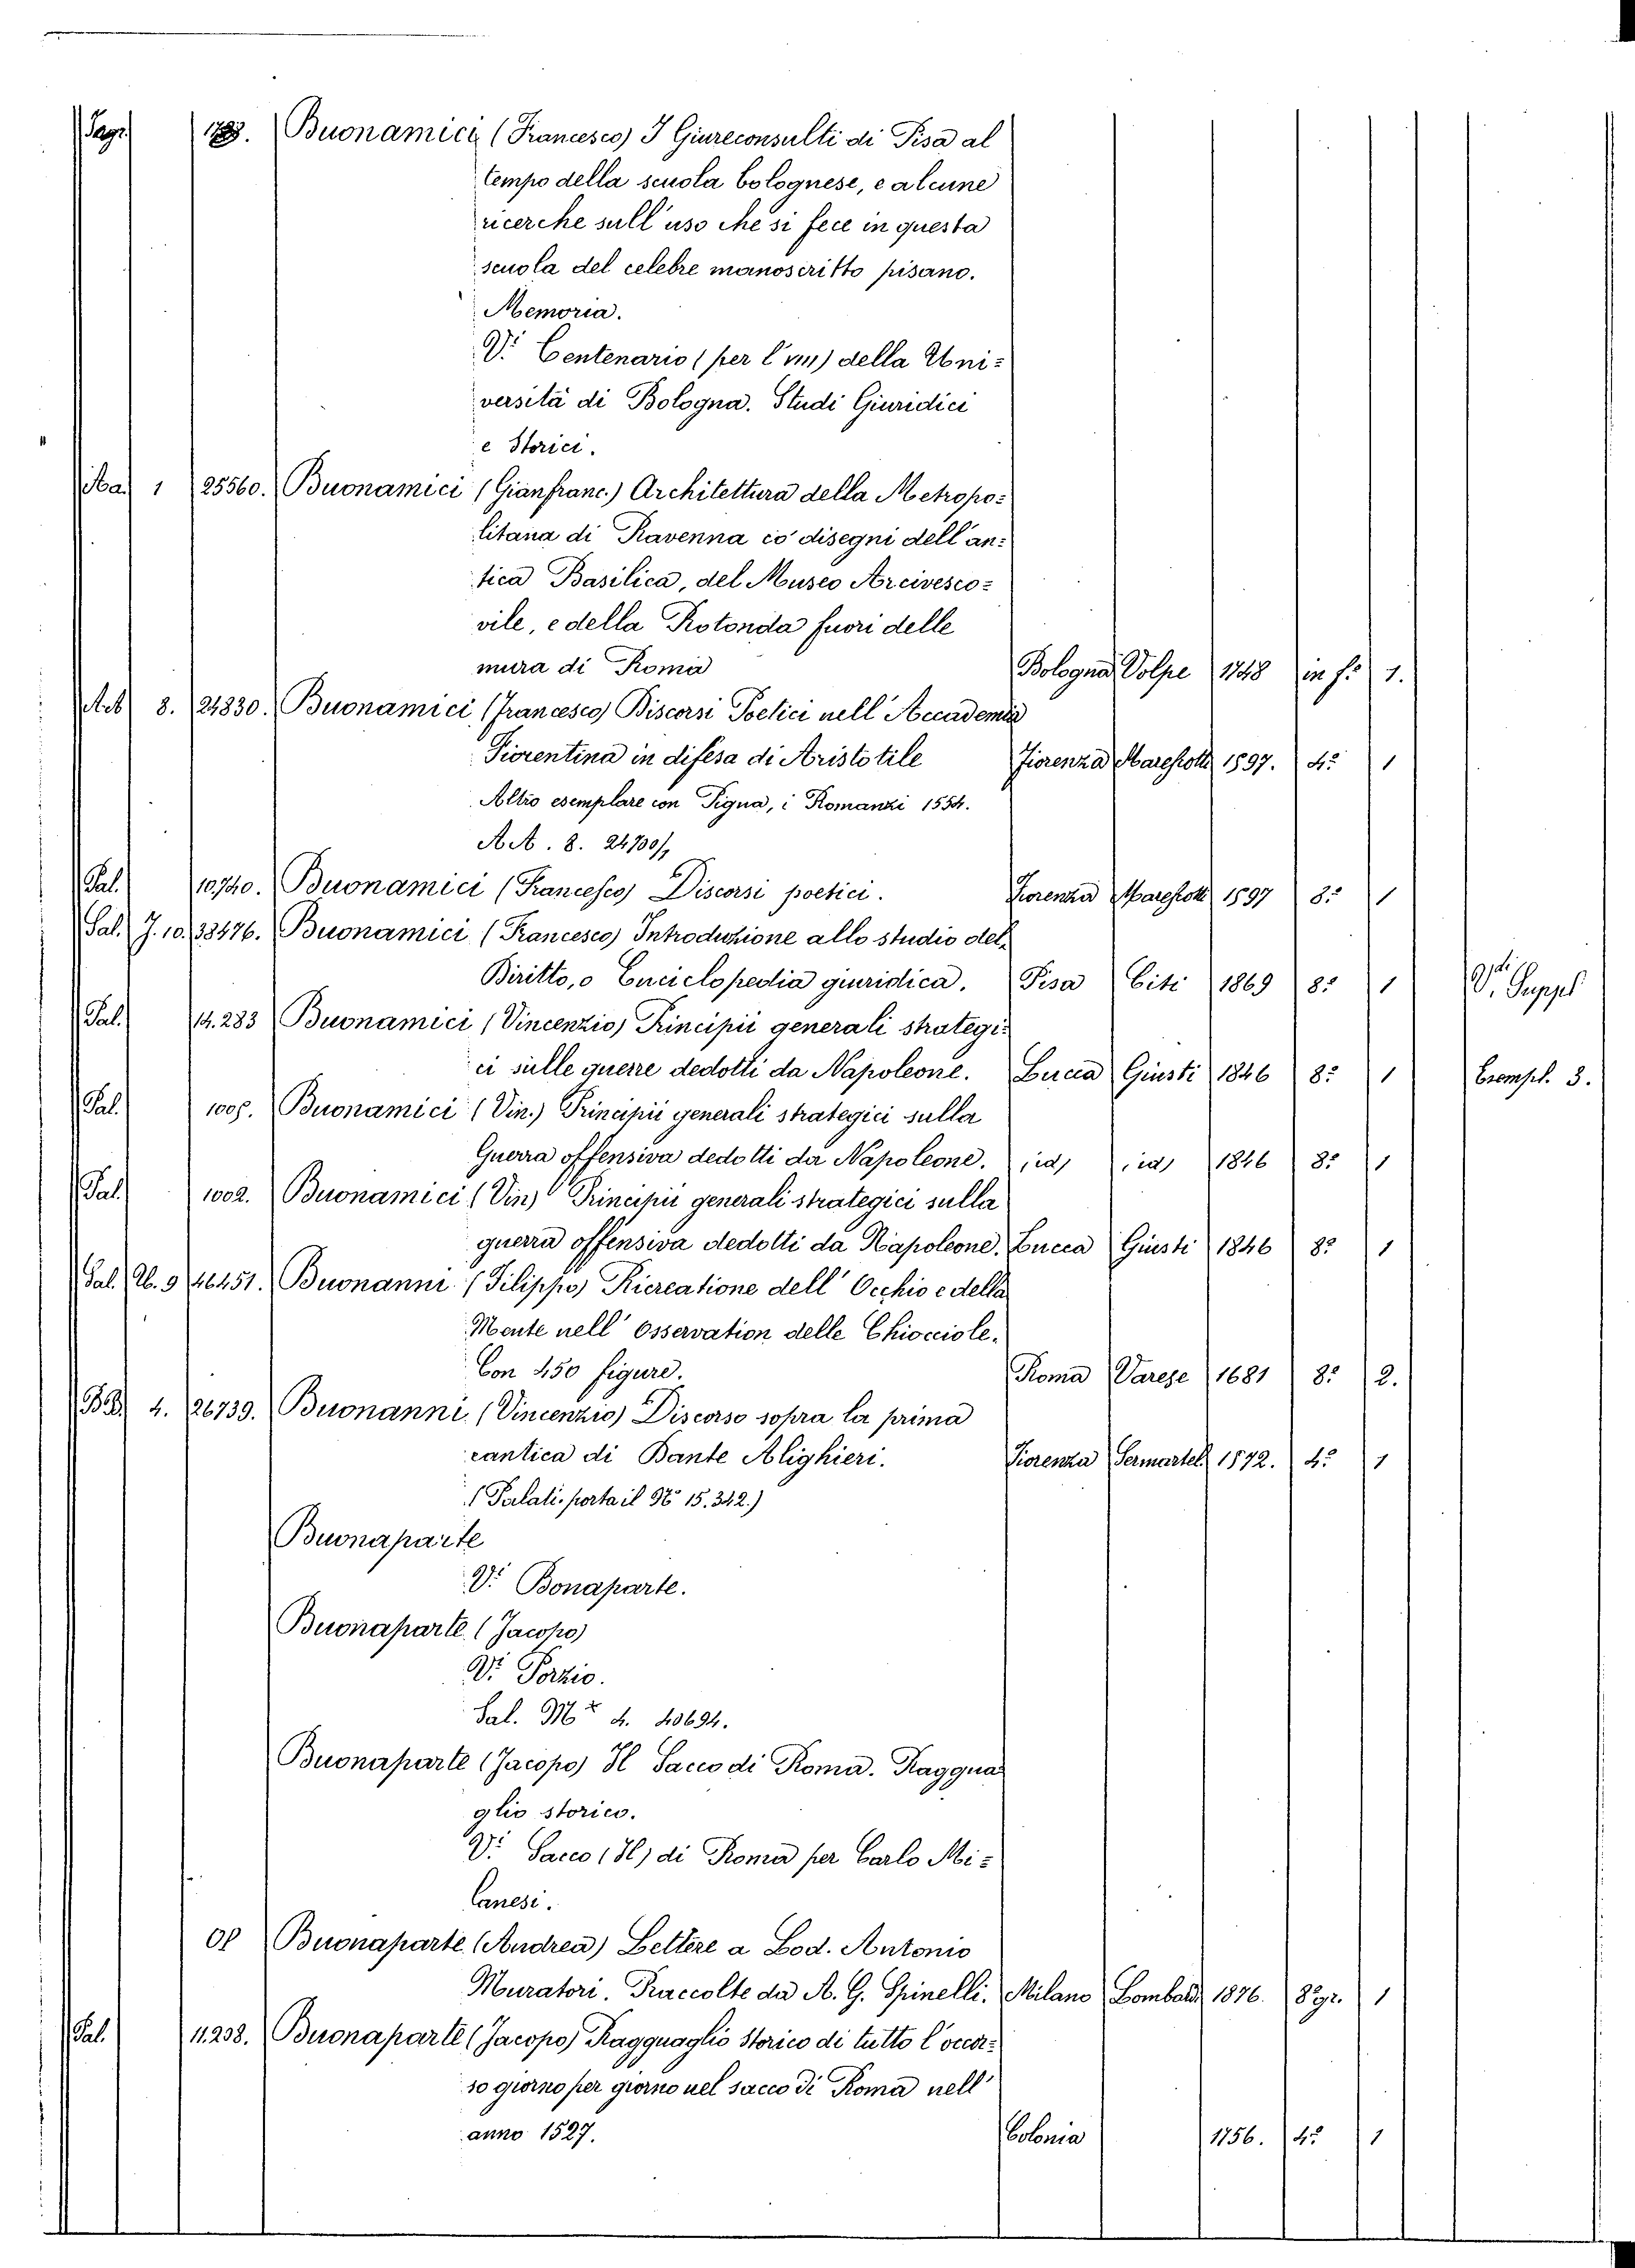 1723. Buonamici (Francesco) I Giureconsulti di Pisa al
tempo della scuola bolognese, e alcune
ricerche sull'uso che si fece in questa
scuola del celebre manoscritto pisano.
Memoria.
V. Centenario (per l'VIII) della Uni=
versità di Bologna. Studi Giuridici
e Storici.
1 25560. Buonamici (Gianfranc.) Architettura della Metropo=
litana di Ravenna co' disegni dell'an=
tica Basilica, del Museo Arcivesco=
vile, e della Rotonda fuori delle
mura di Roma Bologna Volpe 1748 in f.º 1.
8. 24830. Buonamici (Francesco) Discorsi Poetici nell' Accademia
Fiorentina in difesa di Aristotile Fiorenza Marescotti 1597. 4.º 1
Altro esemplare con Pigna, i Romanzi 1554.
AA. 8. 24700/
Pal. 10,740. Buonamici (Francesco) Discorsi poetici. Fiorenza Marescotti 1597 8.º 1
Sal. J. 10. 38476. Buonamici (Francesco) Introduzione allo studio del
Diritto, o Enciclopedia giuridica. Pisa Citi 1869 8.º 1 V. Suppl
Pal. 14.283 Buonamici (Vincenzio) Principii generali strategi=
ci sulle guerre dedotti da Napoleone. Lucca Giusti 1846 8.º 1 Esempl. 3.
Pal. Buonamici (Vin.) Principii generali strategici sulla
Guerra offensiva dedotti da Napoleone. id, id, 1846 8.º 1
Pal. 1002. Buonamici (Vin) Principii generali strategici sulla
guerra offensiva dedotti da Napoleone. Lucca Giusti 1846 8.º 1
Sal. 9 46451. Buonanni (Filippo) Ricreatione dell' Occhio e della
Mente nell' Osservation delle Chiocciole.
Con 450 figure. Roma Varese 1681 8.º 2.
BB. 4. 26739. Buonanni (Vincenzio) Discorso sopra la prima
cantica di Dante Alighieri. Fiorenza Sermartel 1572. 4.º 1
(Palat. porta il Nº 15.342.)
Buonaparte
V. Bonaparte.
Buonaparte (Jacopo)
V. Porzio.
Sal. 4. 40694.
Buonaparte (Jacopo) Il Sacco di Roma. Raggua
glio storico.
V. Sacco (Il) di Roma per Carlo Mi=
lanesi.
Op Buonaparte (Andrea) Lettere a Lod. Antonio
Muratori. Raccolte da A. G. Spinelli. Milano Lombardi 1876. 8º gr. 1
Pal. 11.238. Buonaparte (Jacopo) Ragguaglio Storico di tutto l'occor=
so giorno per giorno nel sacco di Roma nell'
anno 1527. Colonia 1756. 4.º 1